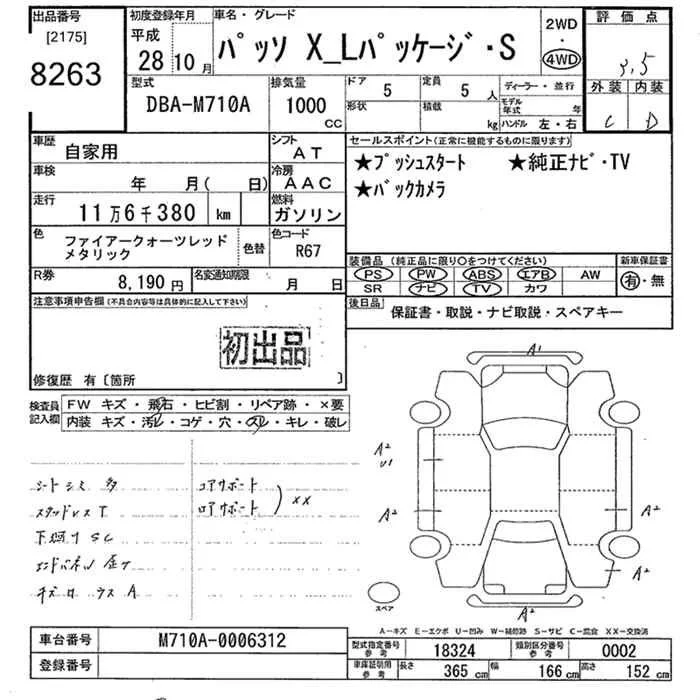 出品番号
[2175]
8263
初度登録年月
平成
28年10月
車名・グレード
パッソ X_Lパッケージ・S
2WD
・
4WD
評価点
3.5
外装 内装
C D
型式
DBA-M710A
排気量
1000
CC
ドア
5
定員
5人
形状
積載
kg
ディーラー・並行
モデル年式 年
ハンドル 左・右
車歴
自家用
シフト
AT
車検
年 月( 日)
冷房
AAC
走行
11万6千380 km
燃料
ガソリン
色
ファイアークォーツレッド
メタリック
色替
色コード
R67
R券
8,190円
名変通知期限
月 日
セールスポイント(正常に機能するものに限ります)
★プッシュスタート ★純正ナビ・TV
★バックカメラ
装備品 (純正品に限り○をつけてください)
PS PW ABS エアB AW
SR ナビ TV カワ
新車保証書
有・無
後日品
保証書・取説・ナビ取説・スペアキー
注意事項申告欄(不具合内容等は具体的に記入して下さい)
初出品
修復歴 有〔箇所 〕
検査員
記入欄
FW キズ・飛石・ヒビ割・リペア跡・×要
内装 キズ・汚レ・コゲ・穴・スレ・キレ・破レ
シートシミ 多
スタッドレスT
下廻り SC
コアサポート
ロアサポート
××
A1
A2
U1
A2
A2
A2
A2
スペア
A-キズ E-エクボ U-凹み W-補修跡 S-サビ C-腐食 XX-交換済
車台番号
M710A-0006312
登録番号
型式指定番号
参考
18324
類別区分番号
参考
0002
車庫証明用
参考
長さ 365 cm 幅 166 cm 高さ 152 cm